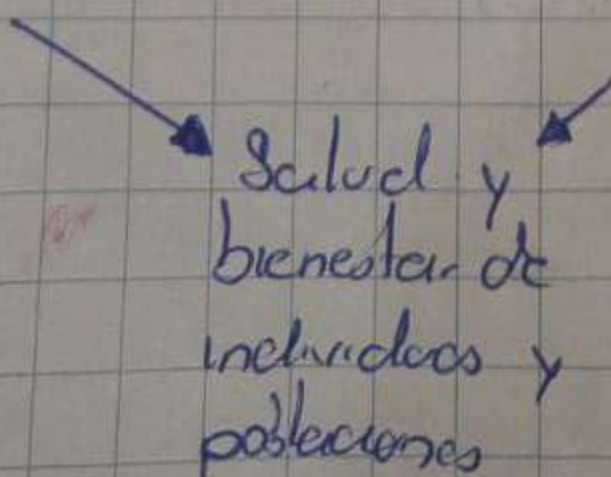 Salud y
bienestar de
individuos y
poblaciones